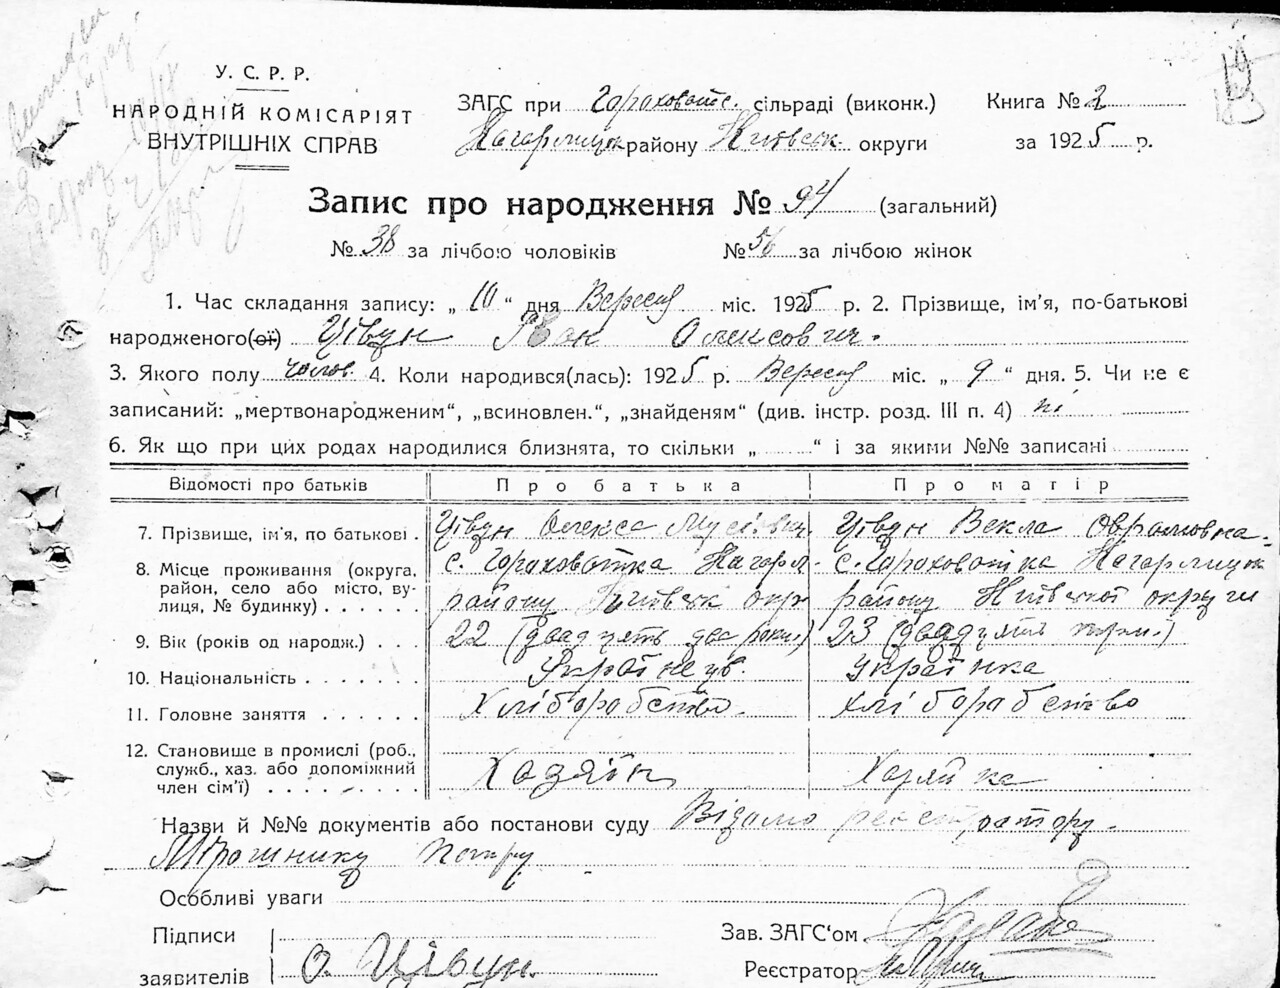 У. С. Р. Р.
НАРОДНІЙ КОМІСАРІЯТ
ВНУТРІШНІХ СПРАВ
ЗАГС при Гороховатс. сільраді (виконк.)
Кагарлицьк району Київськ округи
Книга № 2
за 1925 р.
Запис про народження № 94 (загальний)
№ 38 за лічбою чоловіків № 56 за лічбою жінок
1. Час складання запису: „ 10 “ дня Вересня міс. 1925 р. 2. Прізвище, ім'я, по-батькові
народженого(ої) Цівун Іван Олексович.
3. Якого полу чолов. 4. Коли народився(лась): 1925 р. Вересня міс. „ 9 “ дня. 5. Чи не є
записаний: „мертвонародженим“, „всиновлен.“, „знайденям“ (див. інстр. розд. III п. 4) ні
6. Як що при цих родах народилися близнята, то скільки „ “ і за якими №№ записані
Відомості про батьків Про батька Про матір
7. Прізвище, ім'я, по батькові . Цівун Олекса Мусієвич Цівун Векла Оврамовна.
8. Місце проживання (округа, район, село або місто, вулиця, № будинку) с. Гороховатка Кагарл. с. Гороховатка Кагарлицьк
району Київськ окр району Київської округи
9. Вік (років од народж.) . . . 22 (двадцять два роки.) 23 (двадцять три.)
10. Національність . . . . . . . Українець. Українка
11. Головне заняття . . . . . . Хліборобство. Хліборобство
12. Становище в промислі (роб., служб., хаз. або допоміжний член сім'ї) Хазяїн Хазяйка
Назви й №№ документів або постанови суду Відомо реєстратору.
Мірошнику Петру
Особливі уваги
Підписи
заявителів О. Цівун.
Зав. ЗАГС'ом
Реєстратор